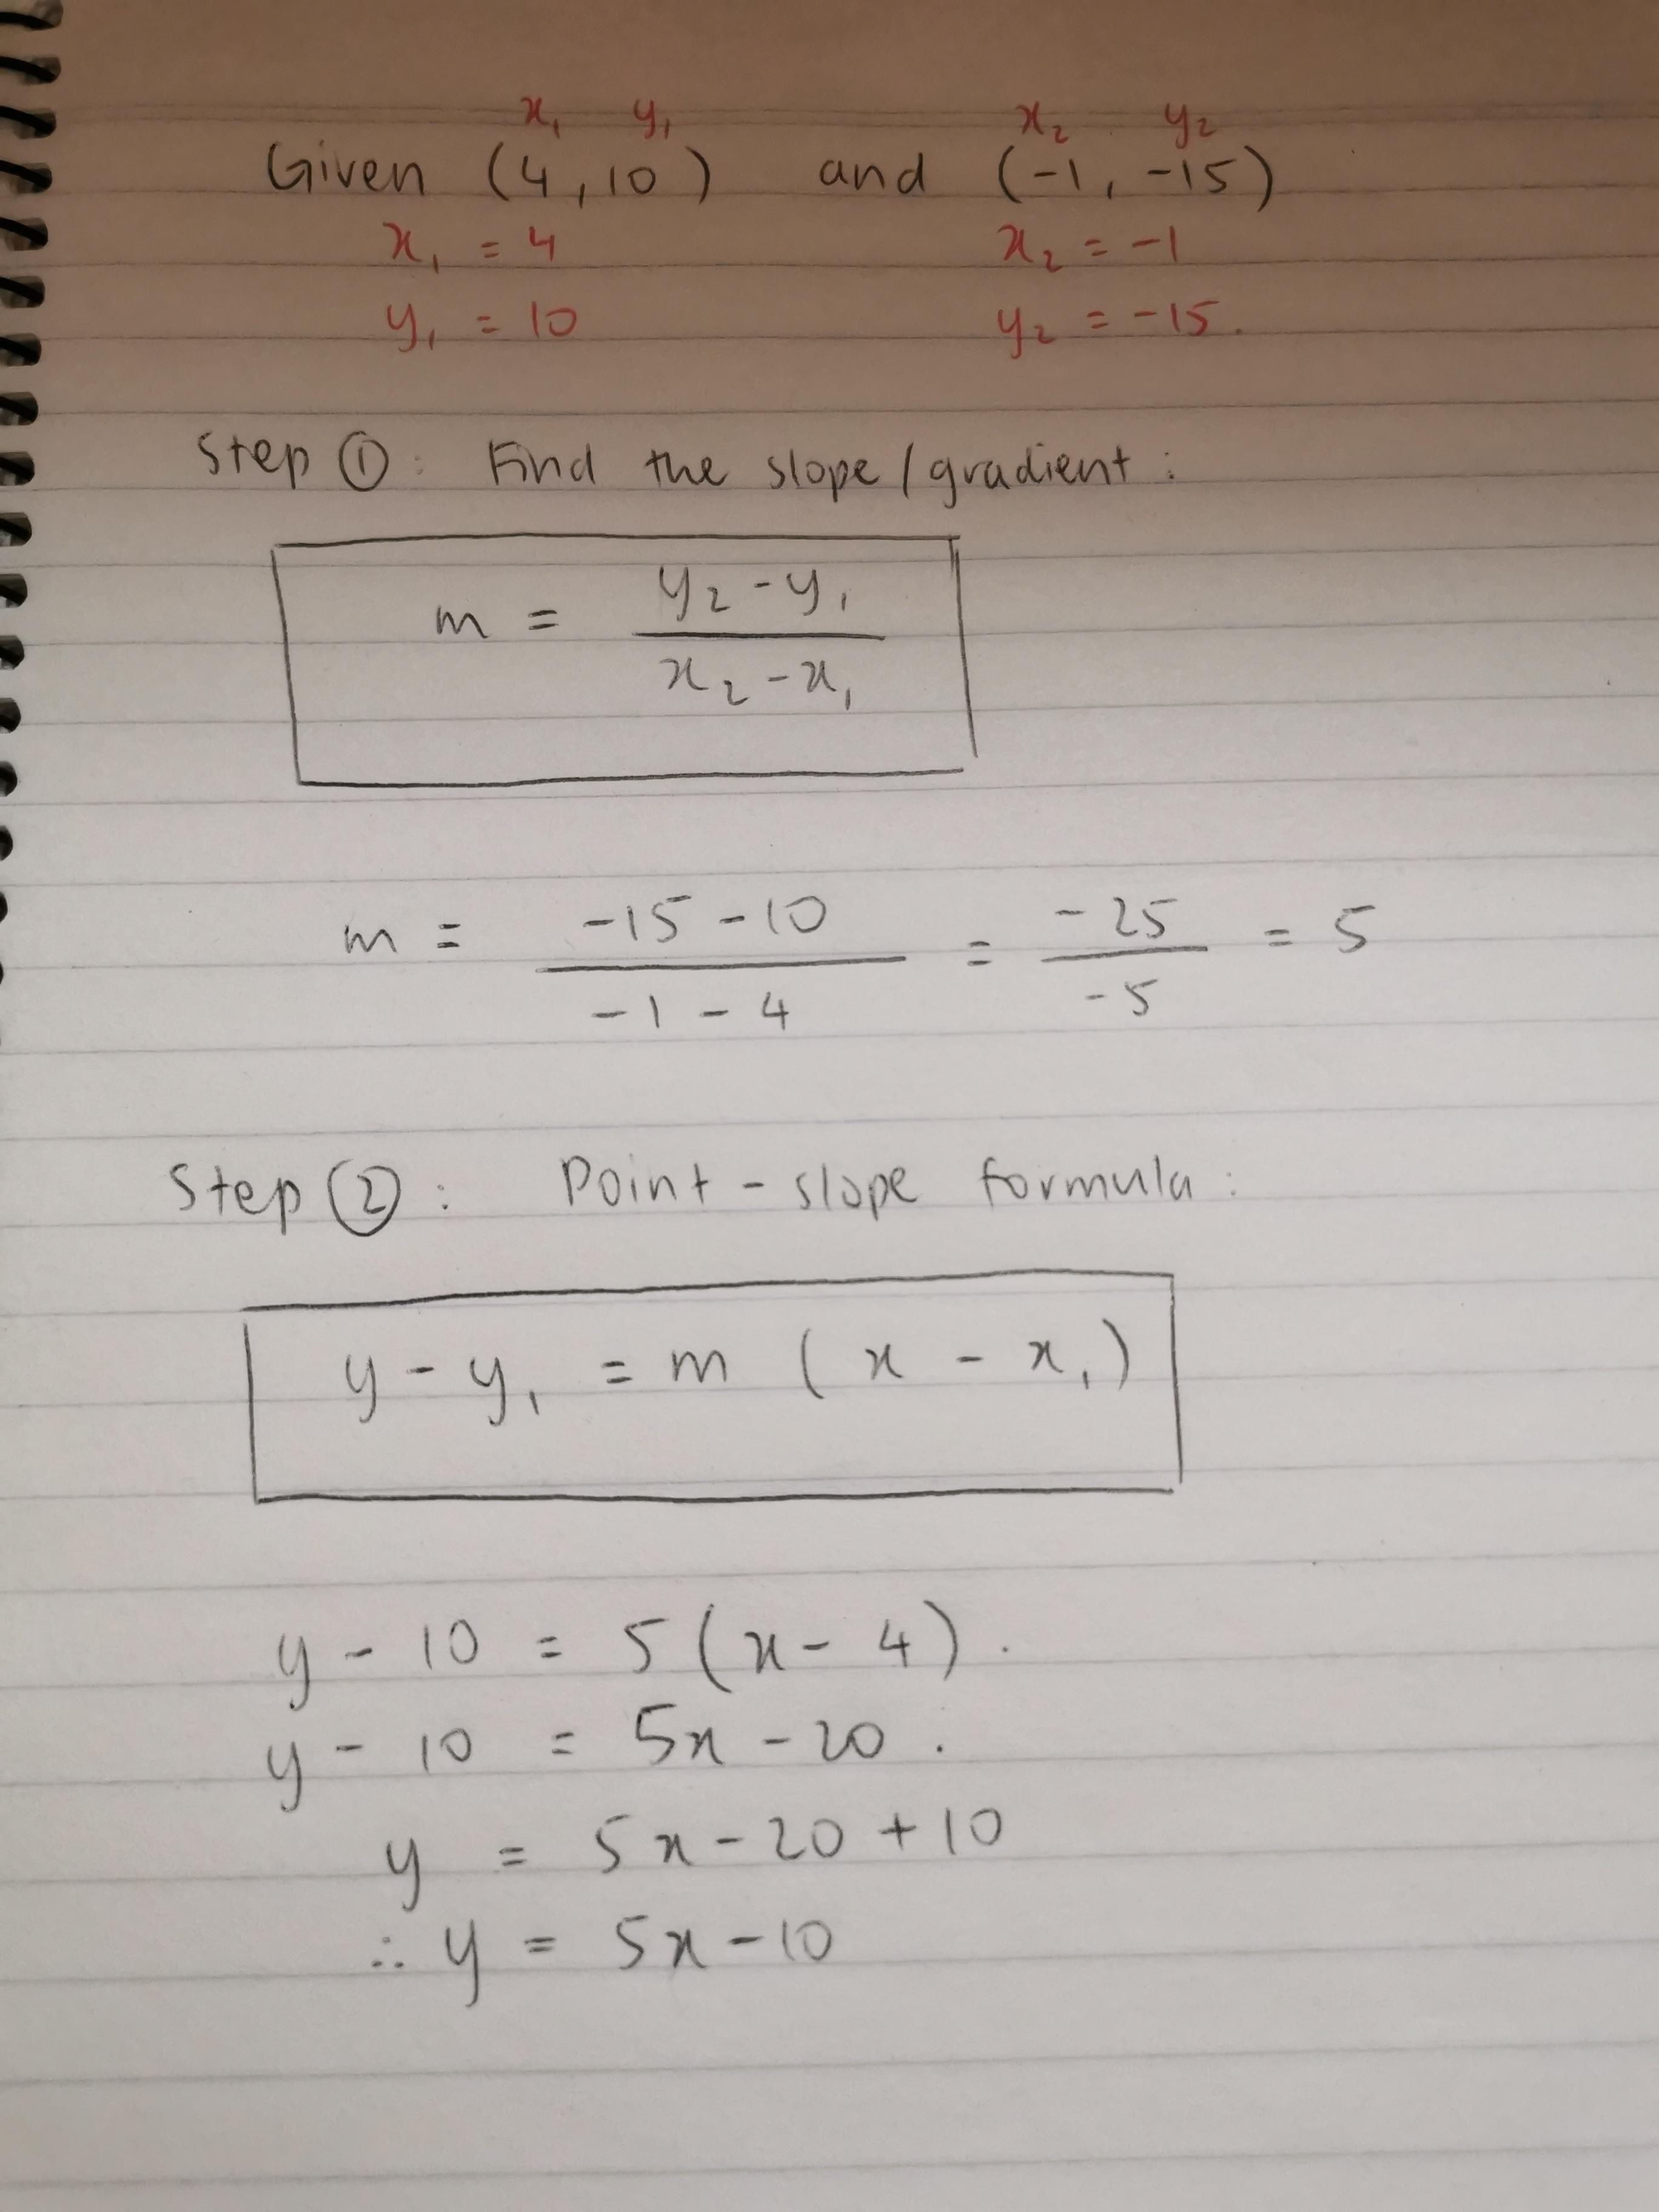 x₁ y₁ x₂ y₂
Given (4, 10) and (-1, -15)
x₁ = 4 x₂ = -1
y₁ = 10 y₂ = -15.
Step ①: Find the slope / gradient:
m = (y₂ - y₁)/(x₂ - x₁)
m = (-15 - 10)/(-1 - 4) = -25/-5 = 5
Step ②: Point - slope formula:
y - y₁ = m (x - x₁)
y - 10 = 5 (x - 4).
y - 10 = 5x - 20.
y = 5x - 20 + 10
∴ y = 5x - 10